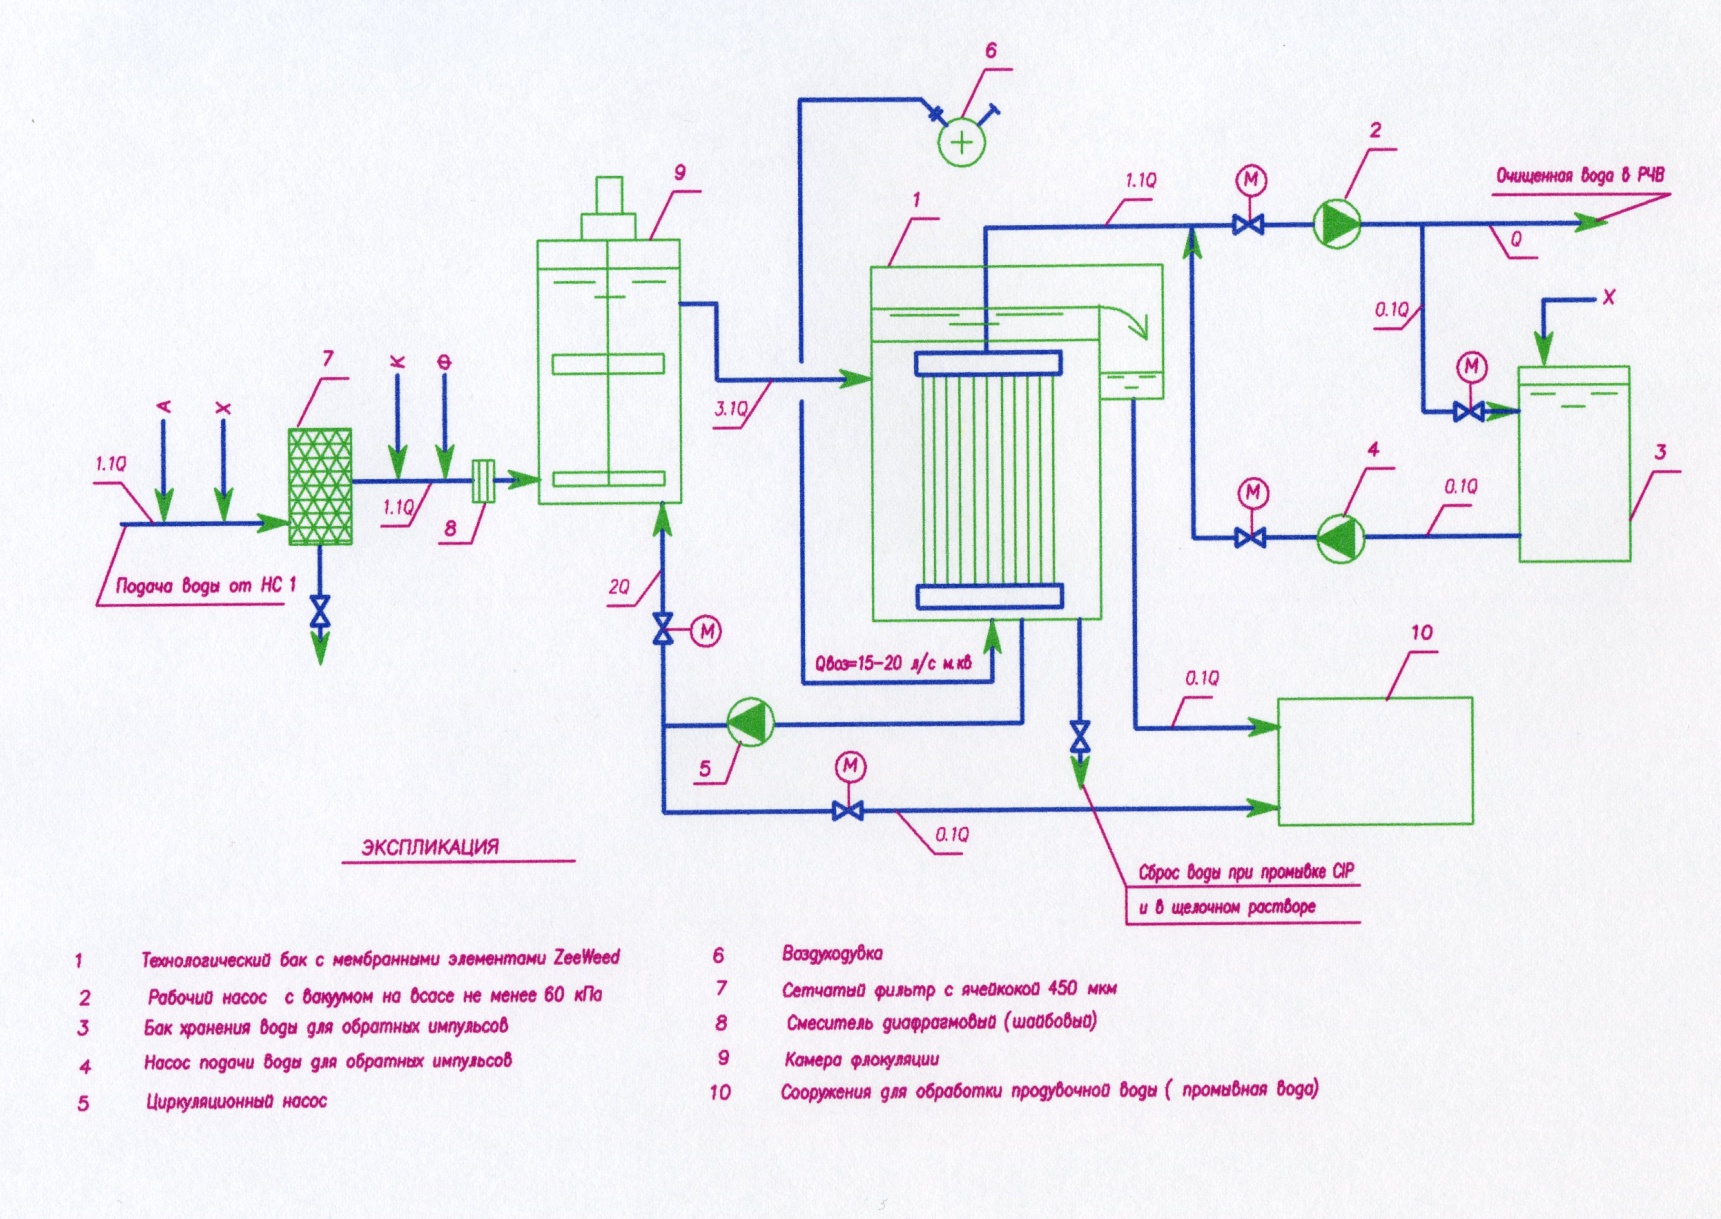 6
2
9
Очищенная вода в РЧВ
1.1Q
1
M
Q
X
0.1Q
M
7
К
Ф
3.1Q
А
Х
1.1Q
1.1Q
8
4
3
M
0.1Q
Подача воды от НС 1
2Q
M
Qвоз=15-20 л/с м.кв
10
0.1Q
5
M
0.1Q
ЭКСПЛИКАЦИЯ
Сброс воды при промывке CIP
и в щелочном растворе
1 Технологический бак с мембранными элементами ZeeWeed
2 Рабочий насос с вакуумом на всасе не менее 60 кПа
3 Бак хранения воды для обратных импульсов
4 Насос подачи воды для обратных импульсов
5 Циркуляционный насос
6 Воздуходувка
7 Сетчатый фильтр с ячейкокой 450 мкм
8 Смеситель диафрагмовый (шайбовый)
9 Камера флокуляции
10 Сооружения для обработки продувочной воды ( промывная вода)